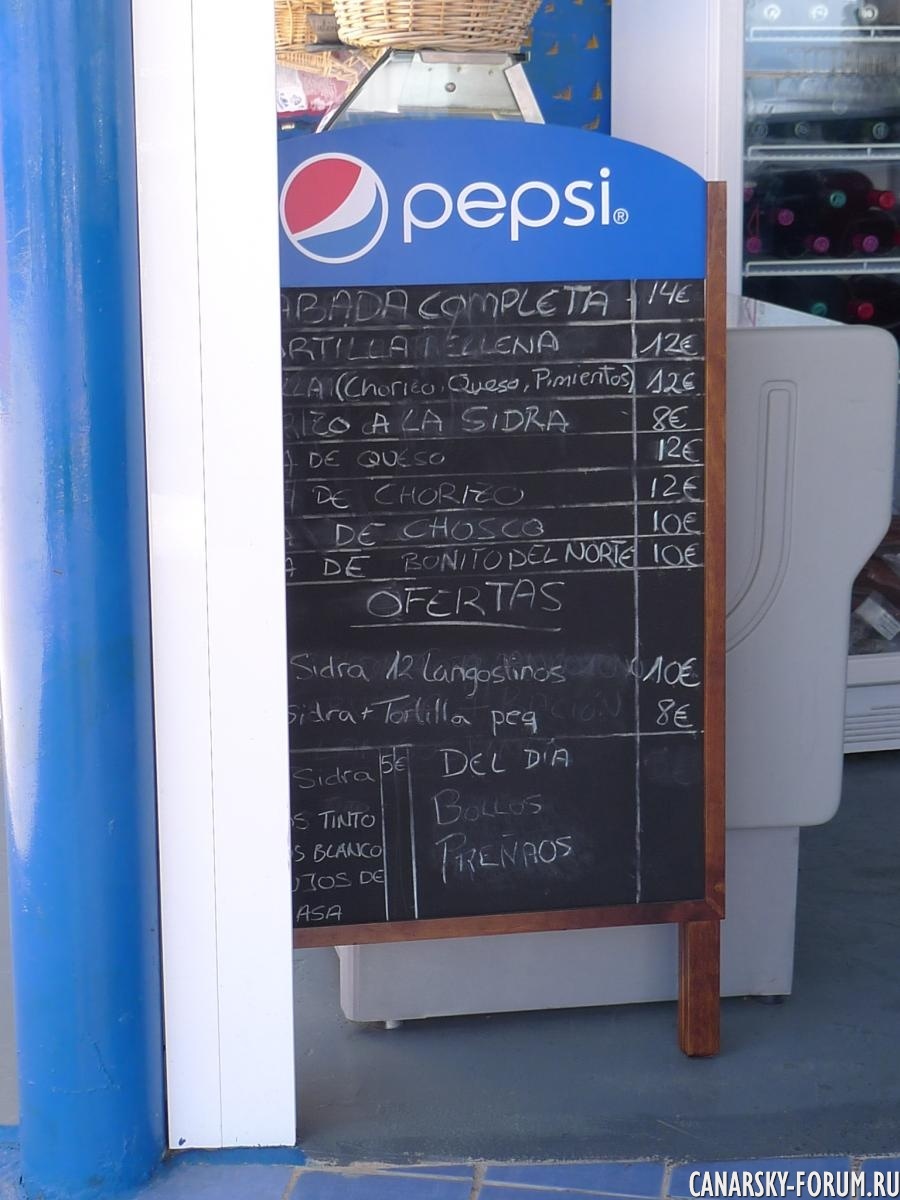 pepsi®
ABADA COMPLETA 14€
ORTILLA RELLENA 12€
LLA (Chorizo, Queso, Pimientos) 12€
RIZO A LA SIDRA 8€
A DE QUESO 12€
A DE CHORIZO 12€
A DE CHOSCO 10€
A DE BONITO DEL NORTE 10€
OFERTAS
Sidra 12 Langostinos 10€
Sidra + Tortilla peq 8€
Sidra 5€
S TINTO
S BLANCO
UJOS DE
ASA
DEL DÍA
BOLLOS
PREÑAOS
CANARSKY-FORUM.RU